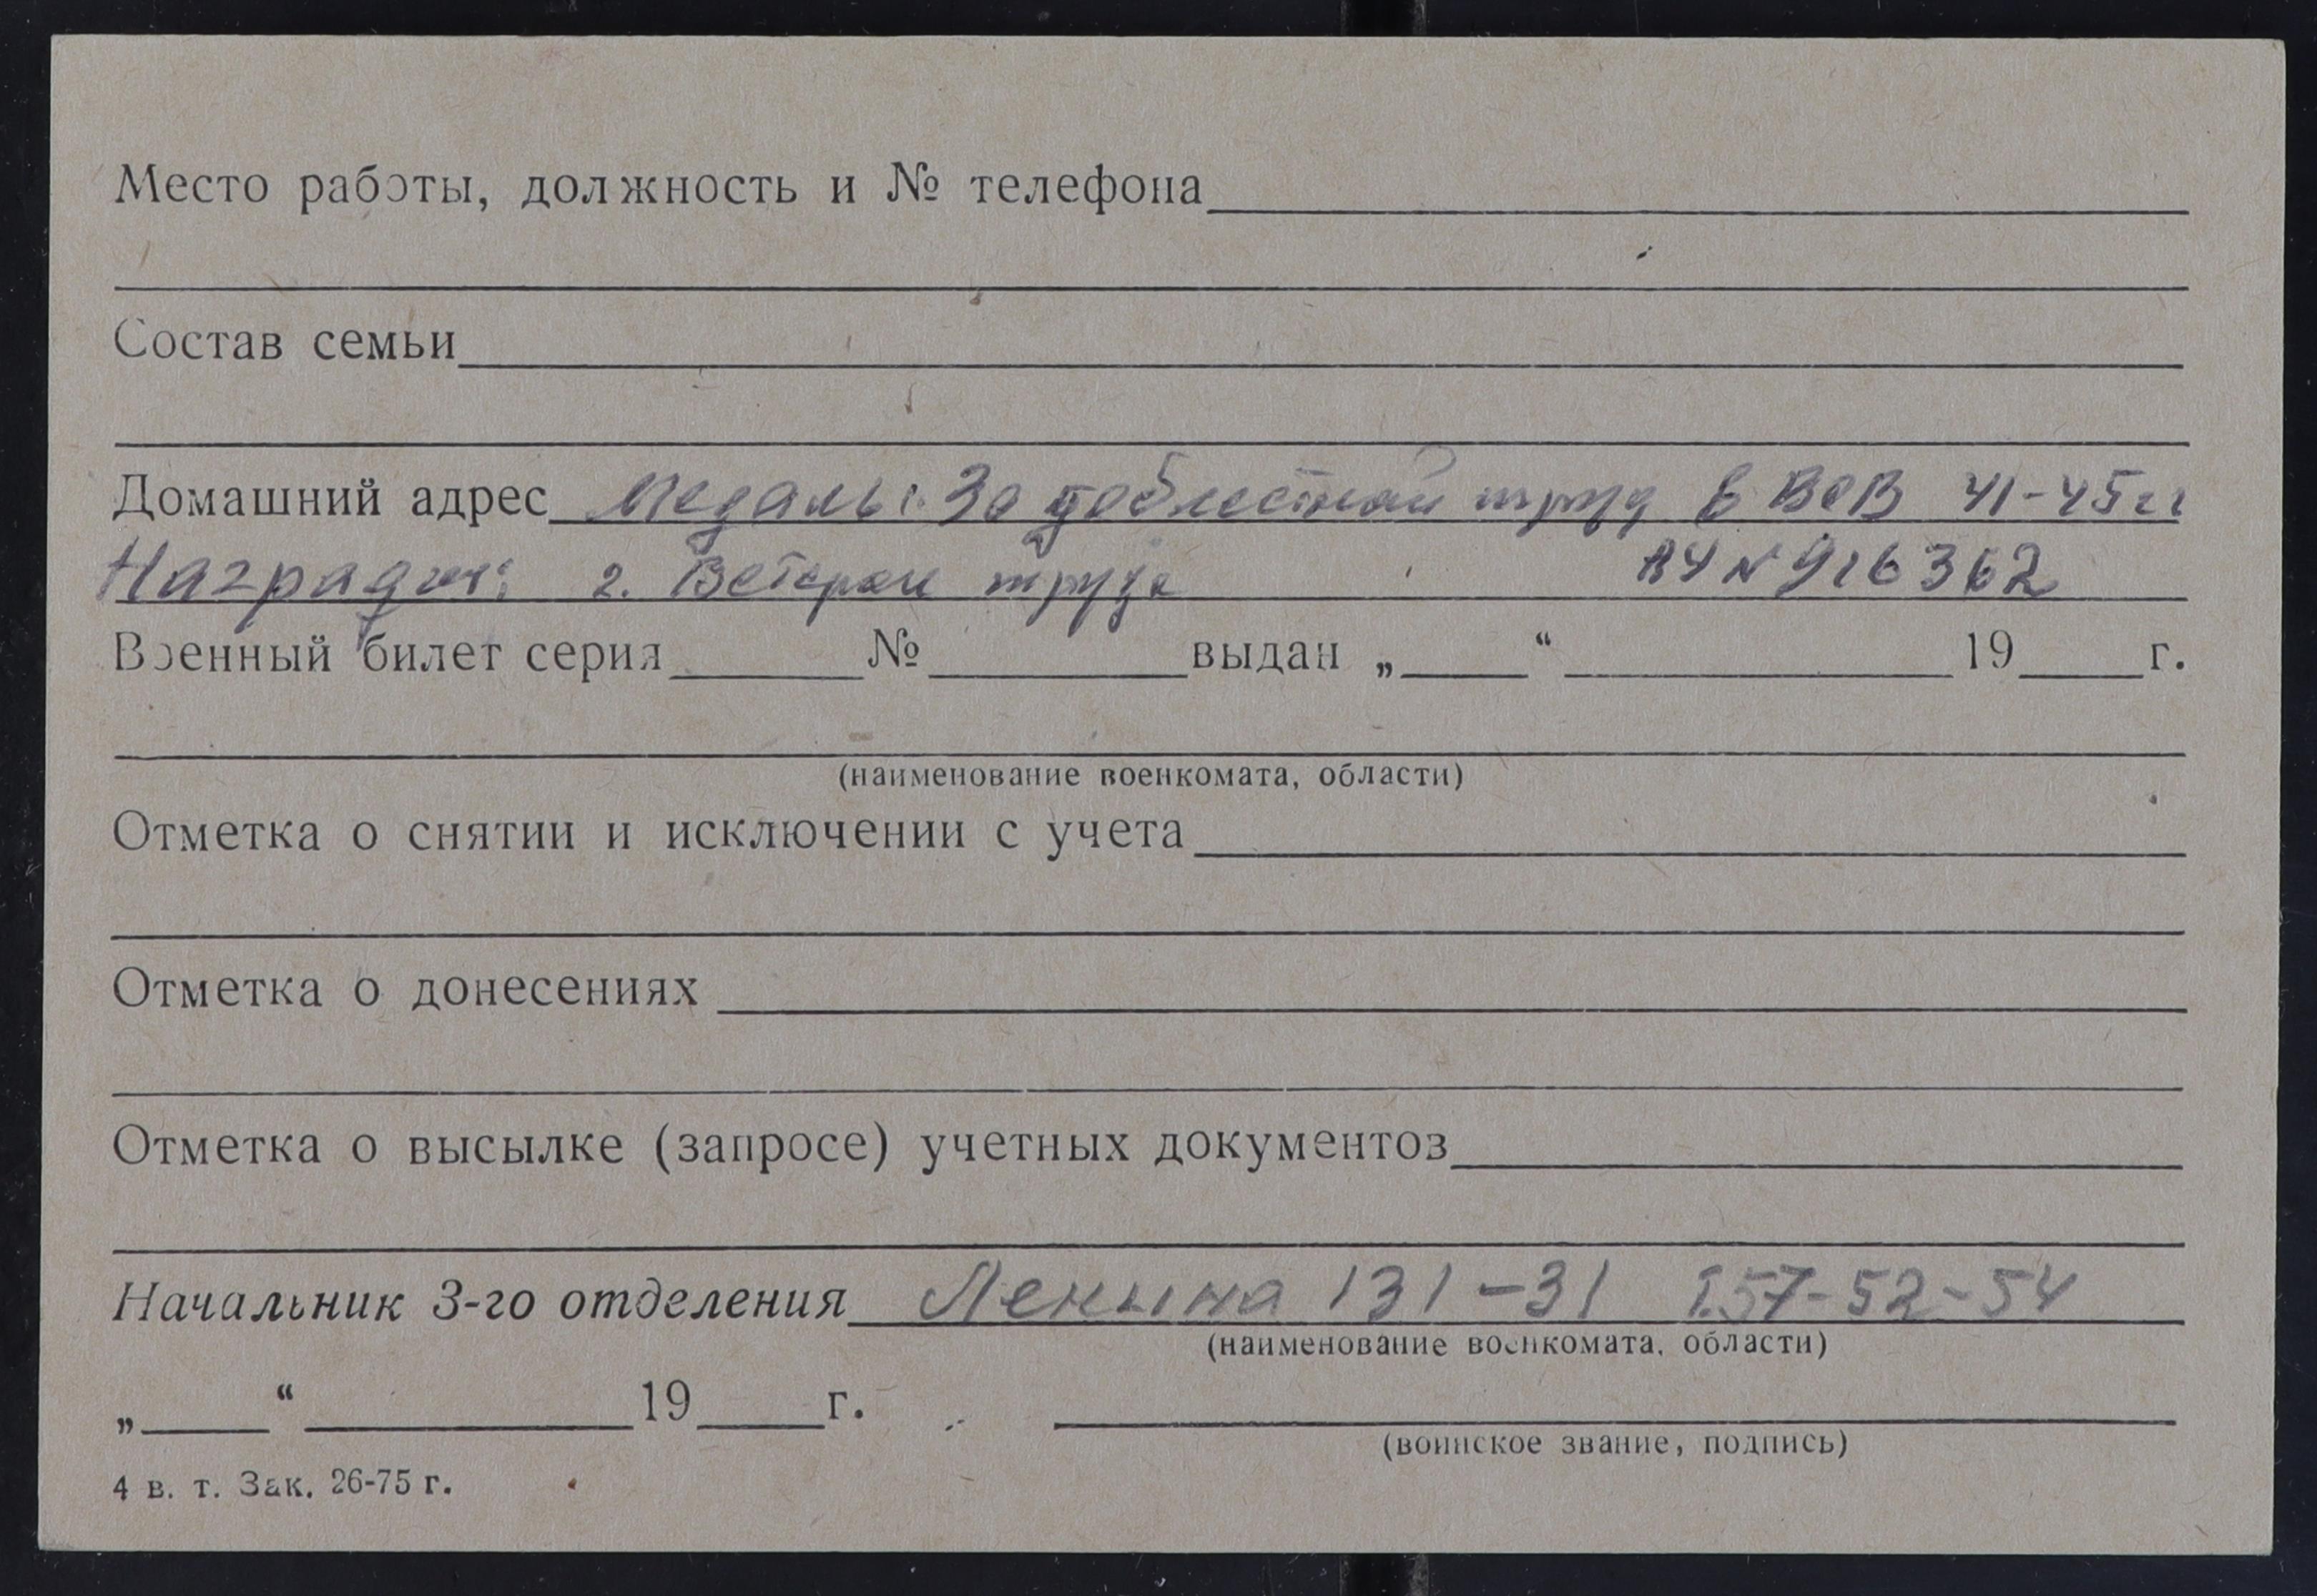 Место работы, должность и № телефона
Состав семьи
Домашний адрес Медаль 1. За доблестный труд в ВОВ 41-45гг
Награды: 2. Ветеран труда ВЧ № 916362
Военный билет серия № выдан „ “ 19 г.
(наименование военкомата, области)
Отметка о снятии и исключении с учета
Отметка о донесениях
Отметка о высылке (запросе) учетных документов
Начальник 3-го отделения Ленина 131-31 т.57-52-54
(наименование военкомата, области)
„ “ 19 г.
(воинское звание, подпись)
4 в. т. Зак. 26-75 г.